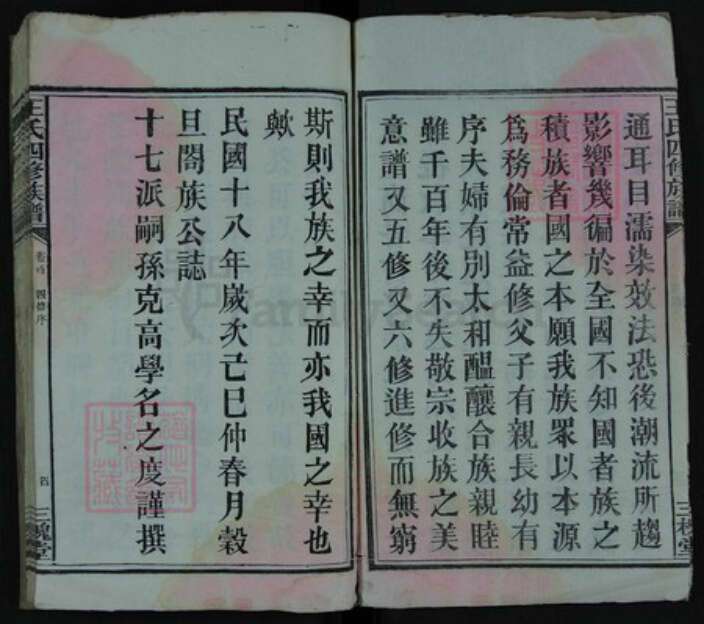 王氏四修族譜
通耳目濡染效法恐後潮流所趨
影響幾徧於全國不知國者族之
積族者國之本願我族眾以本源
爲務倫常益修父子有親長幼有
序夫婦有別太和醞釀合族親睦
雖千百年後不失敬宗收族之美
意譜又五修又六修進修而無窮
三槐堂
斯則我族之幸而亦我國之幸也
歟
民國十八年歲次己巳仲春月穀
旦閤族公誌
十七派嗣孫克高學名之度謹撰
王氏四修族譜
卷首 四修序
三槐堂